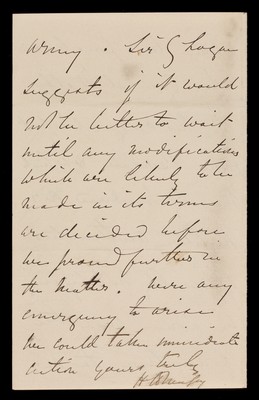 army. Sir G Logan
suggests if it would
not be better to wait
until any modifications
which are likely to be
made in its terms
are decided before
we proceed further in
the matter. Were any
emergency to arise
we could take immediate
action yours truly